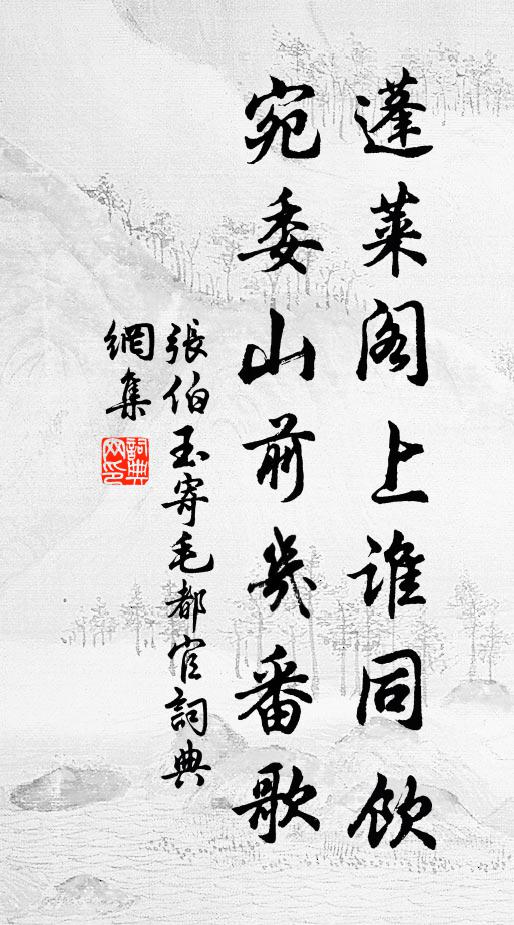 蓬莱阁上谁同饮
宛委山前幾番歌
張伯玉寄毛都官詞典
網集
詞典
网印